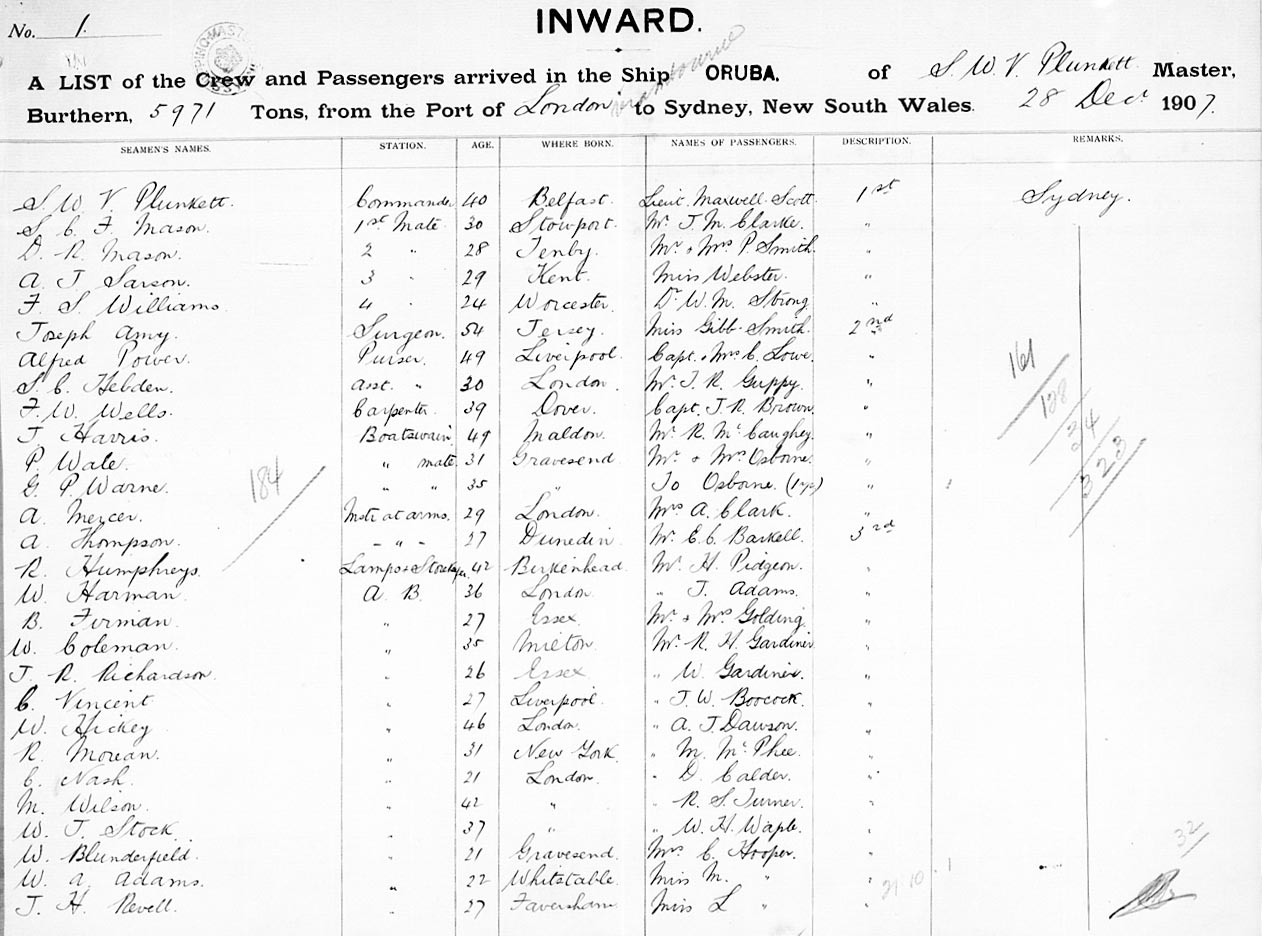 No. 1.
INWARD.
A LIST of the Crew and Passengers arrived in the Ship ORUBA. of S. W. V. Plunkett Master,
Burthern, 5971 Tons, from the Port of London to Sydney, New South Wales. 28 Decr 1907.
SEAMEN'S NAMES. STATION. AGE. WHERE BORN. NAMES OF PASSENGERS. DESCRIPTION. REMARKS.
S. W. V. Plunkett. Commander 40 Belfast. Lieut. Maxwell Scott. 1st Sydney.
S. C. F. Mason. 1st Mate 30 Stowport. Mr. J. M. Clarke. "
D. R. Mason. 2 " 28 Tenby. Mr & Mrs P. Smith. "
A. J. Sarson. 3 " 29 Kent. Miss Webster. "
F. S. Williams. 4 " 24 Worcester. Dr. W. M. Strong "
Joseph Amy. Surgeon. 54 Jersey. Miss Gibb-Smith. 2nd
Alfred Power. Purser. 49 Liverpool. Capt. & Mrs C. Lowe. "
S. C. Hebden. Asst. " 30 London. Mr. J. R. Guppy. "
F. W. Wells. Carpenter. 39 Dover. Capt. J. R. Brown. "
J. Harris. Boatswain 49 Maldon. Mr. R. McCaughey. "
P. Wale. " mate. 31 Gravesend Mr. & Mrs Osborne. "
G. P. Warne. " " 35 " Jo Osborne. "
A. Mercer. Mstr at arms. 29 London. Mrs A. Clark. "
A. Thompson. - " - 27 Dunedin Mr. E. C. Barkell. 3rd
R. Humphreys. Lamps & 42 Birkenhead Mr. H. Pidgeon. "
W. Harman. A. B. 36 London. " J. Adams. "
B. Firman. " 27 Essex Mr. & Mrs Golding. "
W. Coleman. " 35 Milton. Mr. R. H. Gardiner "
J. R. Richardson. " 26 Essex " W. Gardiner. "
C. Vincent " 27 Liverpool. " J. W. Boocock. "
W. Hickey " 46 London. " A. J. Dawson. "
R. Morean. " 31 New York. " M. McPhee. "
C. Nash. " 21 London. " D. Calder. "
M. Wilson. " 42 " " R. S. Turner. "
W. J. Stock " 37 " " W. H. Waple. "
W. Blunderfield. " 21 Gravesend. Mrs C. Hooper. "
W. A. Adams. " 22 Whitstable. Miss M. " "
J. H. Revell. " 27 Faversham. Miss L " "
184
161
128
34
323
32